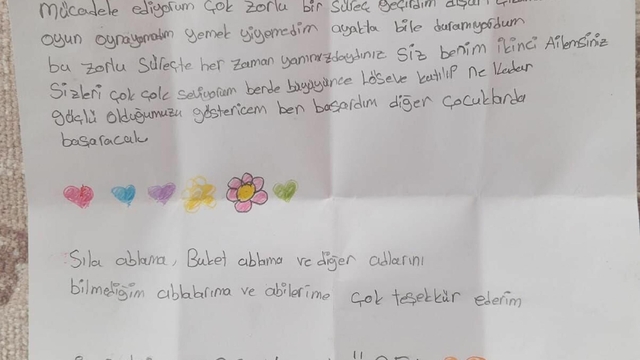 Mücadele ediyorum çok zorlu bir süreç geçirdim dışarı
oyun oynayamadım yemek yiyemedim ayakta bile duramıyordum
bu zorlu süreçte her zaman yanımızdaydınız siz benim ikinci Ailemsiniz
Sizleri çok çok seviyorum bende büyüyünce Löseve katılıp ne kadar
güçlü olduğumuzu göstericem ben başardım diğer çocuklarda
başaracak
Sıla ablama, Buket ablama ve diğer adlarını
bilmediğim ablalarıma ve abilerime çok teşekkür ederim